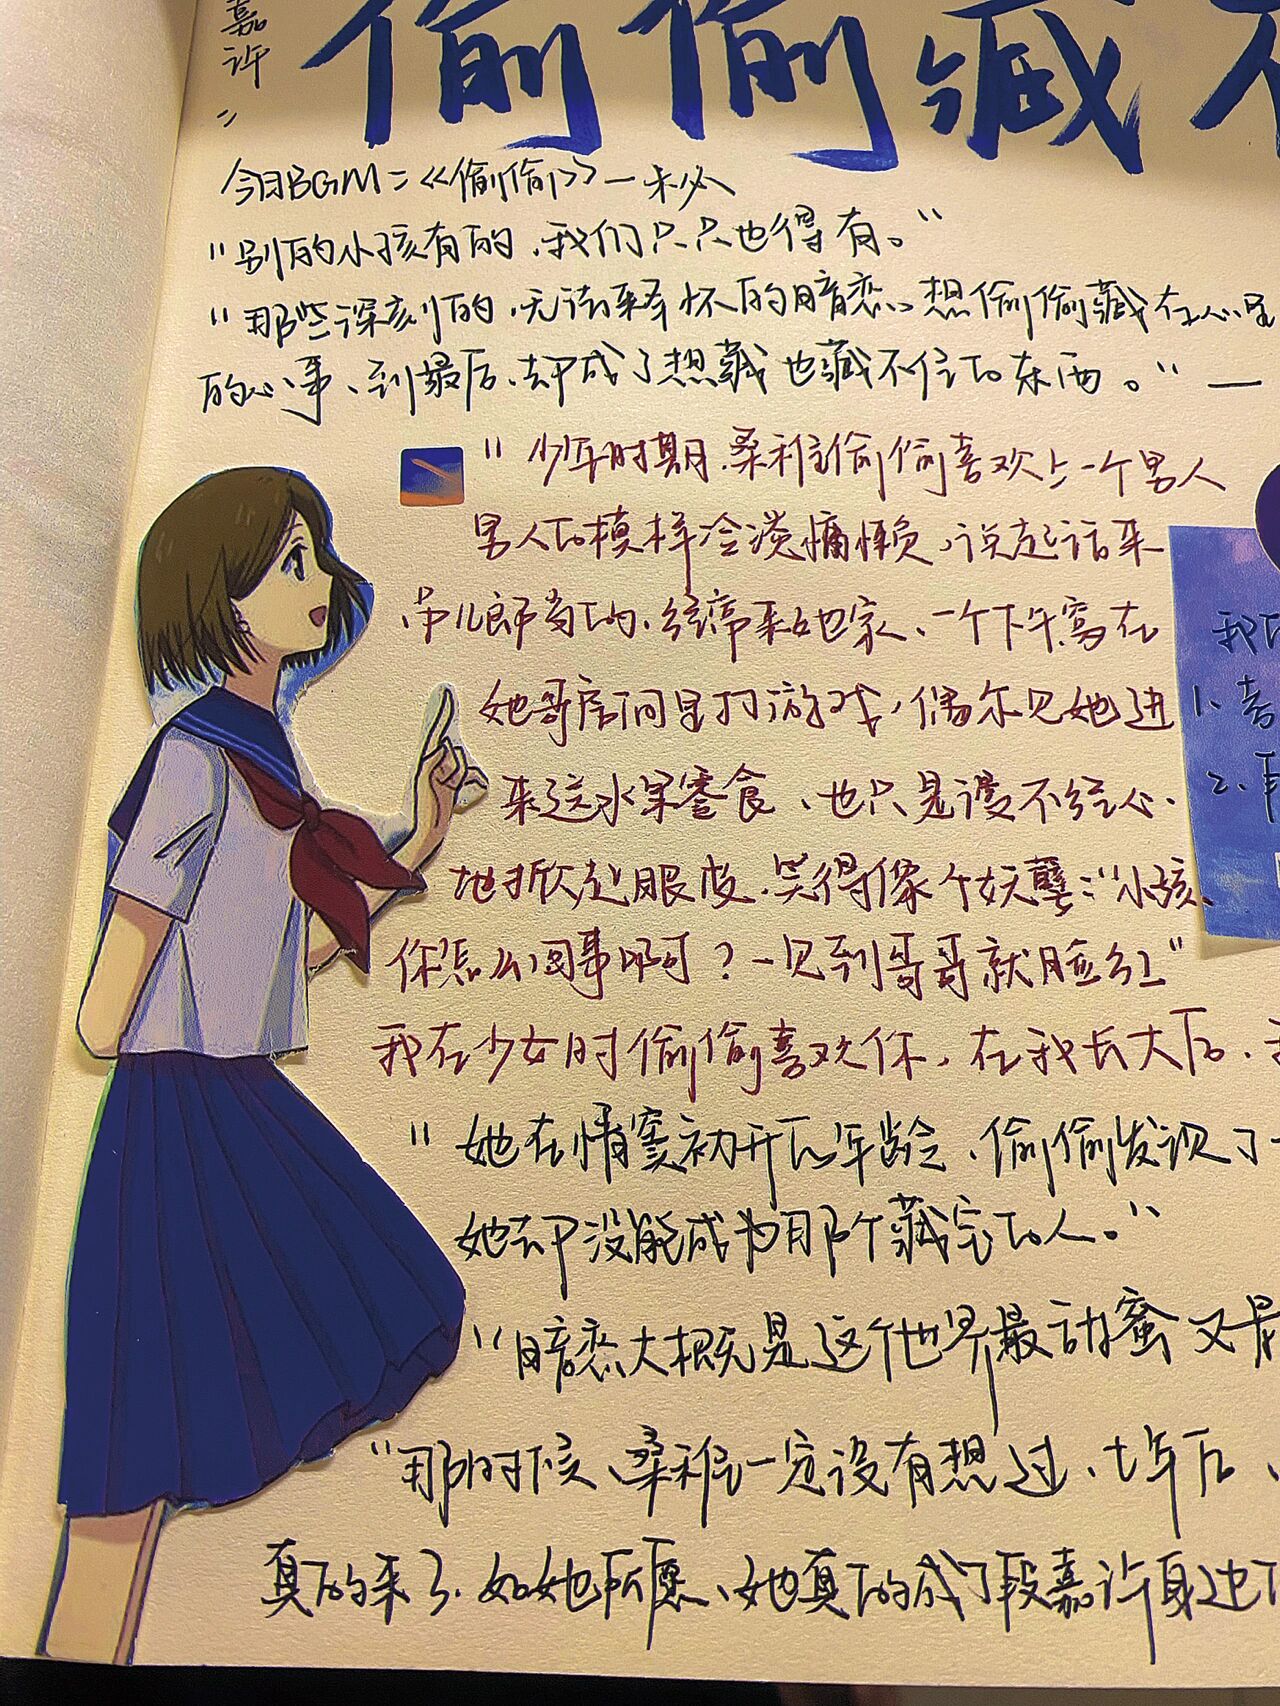 嘉许：
偷偷藏不
今日BGM：《偷偷》—米必
"别的小孩有的，我们只只也得有。"
"那些深刻的，无法释怀的暗恋、想偷偷藏在心里
的心事、到最后，却成了想藏也藏不住的东西。"—
"少年时期，桑稚偷偷喜欢上一个男人
男人的模样冷淡慵懒，说起话来
，吊儿郎当的，经常来她家、一个下午窝在
她哥房间里打游戏，偶尔见她进
来送水果零食、也只是漫不经心
地掀起眼皮，笑得像个妖孽："小孩、
你怎么回事啊？一见到哥哥就脸红"
我在少女时偷偷喜欢你，在我长大后，
"她在情窦初开的年龄、偷偷发现了
她却没能成为那个藏宝的人。"
"暗恋大概是这个世界最甜蜜又最
"那时候、桑稚一定没有想过、七年后、
真的来了、如她所愿、她真的成了段嘉许身边
我
1、考
2、